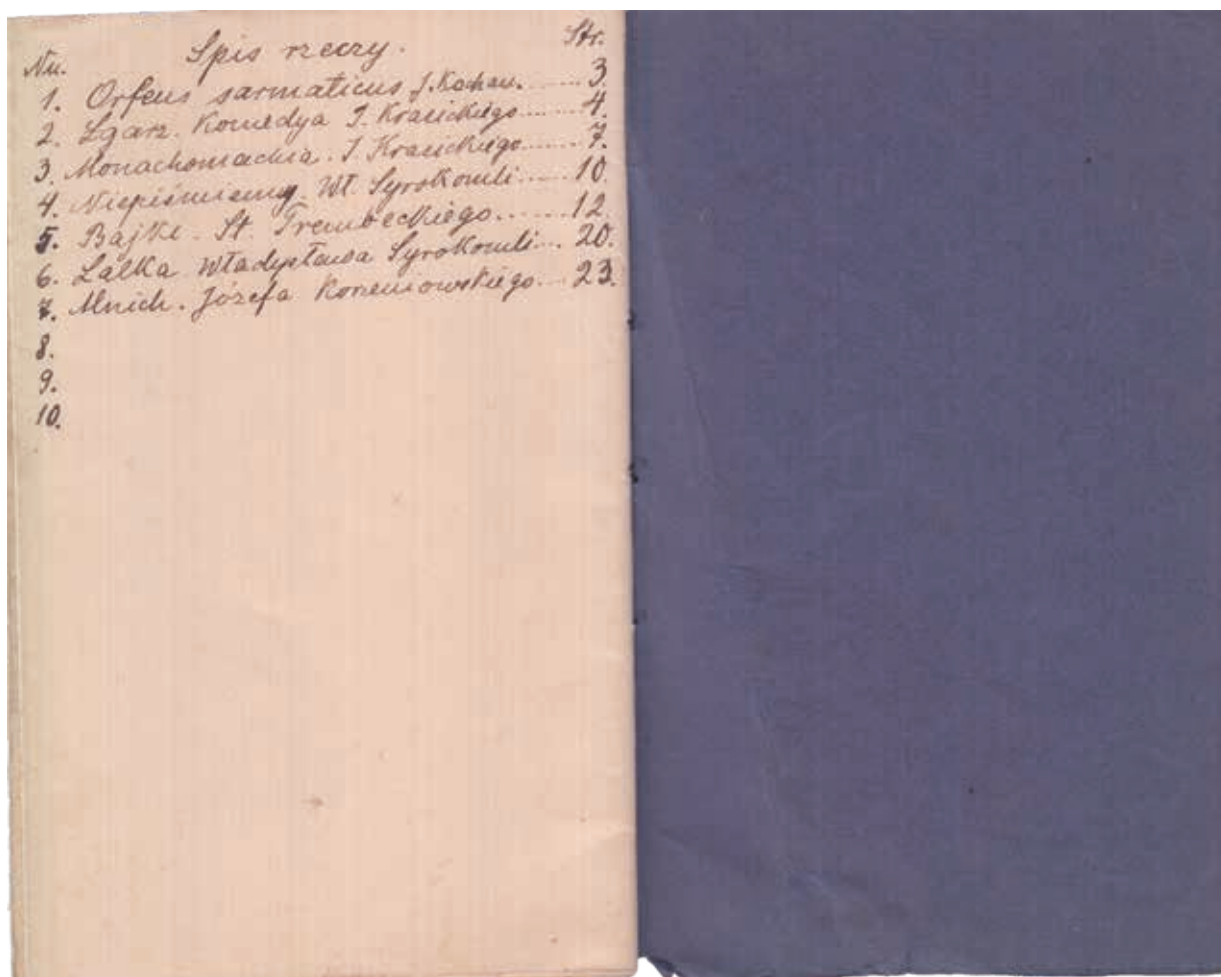 Nu. Spis rzeczy. Str.
1. Orfeus sarmaticus J. Kochan. ...... 3
2. Łgarz. Komedya I. Krasickiego ...... 4.
3. Monachomachia. I Krasickiego ...... 7.
4. Niepiśmienny. Wł. Syrokomli ...... 10.
5. Bajki. St. Trembeckiego ...... 12.
6. Lalka Władysława Syrokomli ... 20.
7. Mnich. Józefa Korzeniowskiego ... 23.
8.
9.
10.